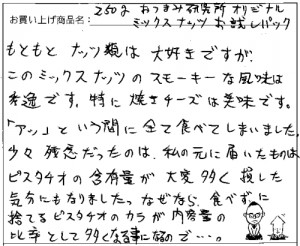 お買い上げ商品名: 250g おつまみ研究所 オリジナル
ミックスナッツ お試しパック
もともと ナッツ類は 大好きですが、
このミックスナッツの スモーキーな風味は
秀逸です。特に 焼きチーズは美味です。
「アッ」という間に 全て食べてしまいました。
少々 残念だったのは、私の元に届いたものは
ピスタチオの 含有量が 大変多く 損した
気分にもなりました。なぜなら、食べずに
捨てる ピスタチオの カラが 内容量の
比率として多くなる事になるので…。